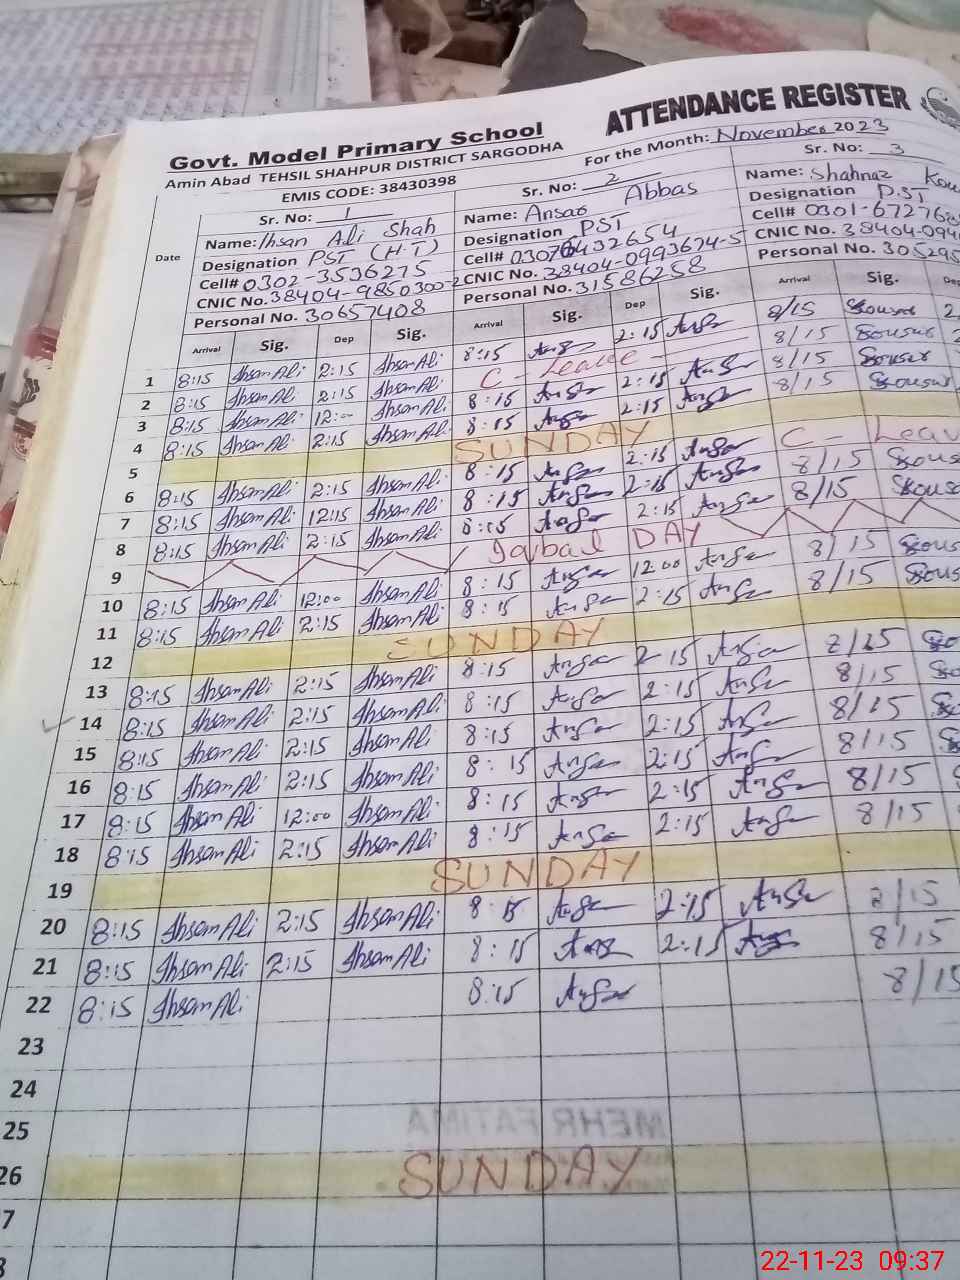 ATTENDANCE REGISTER
Govt. Model Primary School
Amin Abad TEHSIL SHAHPUR DISTRICT SARGODHA
For the Month: November 2023
EMIS CODE: 38430398
Date
Sr. No: 1
Name: Ihsan Ali Shah
Designation PST (H.T)
Cell# 0302-3536275
CNIC No. 38404-9850300-2
Personal No. 30657408
Sr. No: 2
Name: Ansar Abbas
Designation PST
CNIC No. 38404-0993674-5
Personal No. 31586258
Sr. No: 3
Name: Shahnaz
Designation P.ST
Cell# 0301-67276
CNIC No. 38404-094
Personal No. 305295
Arrival Sig. Dep Sig. Arrival Sig. Dep Sig. Arrival Sig. Dep
1 8:15 Ihsan Ali 2:15 Ihsan Ali 8:15 Ansar 2:15 Ansar 8/15 Kousar 2
2 8:15 Ihsan Ali 2:15 Ihsan Ali C - Leave - 8/15 Kousar 2
3 8:15 Ihsan Ali 12:00 Ihsan Ali 8:15 Ansar 2:15 Ansar 8/15 Kousar
4 8:15 Ihsan Ali 2:15 Ihsan Ali 8:15 Ansar 2:15 Ansar 8/15 Kousar
5 SUNDAY
6 8:15 Ihsan Ali 2:15 Ihsan Ali 8:15 Ansar 2:15 Ansar C - Leav
7 8:15 Ihsan Ali 12:15 Ihsan Ali 8:15 Ansar 2:15 Ansar 8/15 Kous
8 8:15 Ihsan Ali 2:15 Ihsan Ali 8:15 Ansar 2:15 Ansar 8/15 Kous
9 Iqbal DAY
10 8:15 Ihsan Ali 12:00 Ihsan Ali 8:15 Ansar 12:00 Ansar 8/15 Kous
11 8:15 Ihsan Ali 2:15 Ihsan Ali 8:15 Ansar 2:15 Ansar 8/15 Kous
12 SUNDAY
13 8:15 Ihsan Ali 2:15 Ihsan Ali 8:15 Ansar 2:15 Ansar 8/15
14 8:15 Ihsan Ali 2:15 Ihsan Ali 8:15 Ansar 2:15 Ansar 8/15
15 8:15 Ihsan Ali 2:15 Ihsan Ali 8:15 Ansar 2:15 Ansar 8/15
16 8:15 Ihsan Ali 2:15 Ihsan Ali 8:15 Ansar 2:15 Ansar 8/15
17 8:15 Ihsan Ali 12:00 Ihsan Ali 8:15 Ansar 2:15 Ansar 8/15
18 8:15 Ihsan Ali 2:15 Ihsan Ali 8:15 Ansar 2:15 Ansar 8/15
19 SUNDAY
20 8:15 Ihsan Ali 2:15 Ihsan Ali 8:15 Ansar 2:15 Ansar 8/15
21 8:15 Ihsan Ali 2:15 Ihsan Ali 8:15 Ansar 2:15 Ansar 8/15
22 8:15 Ihsan Ali 8:15 Ansar 8/15
23
24
25
MEHR FATIMA
26 SUNDAY
7
8
22-11-23 09:37